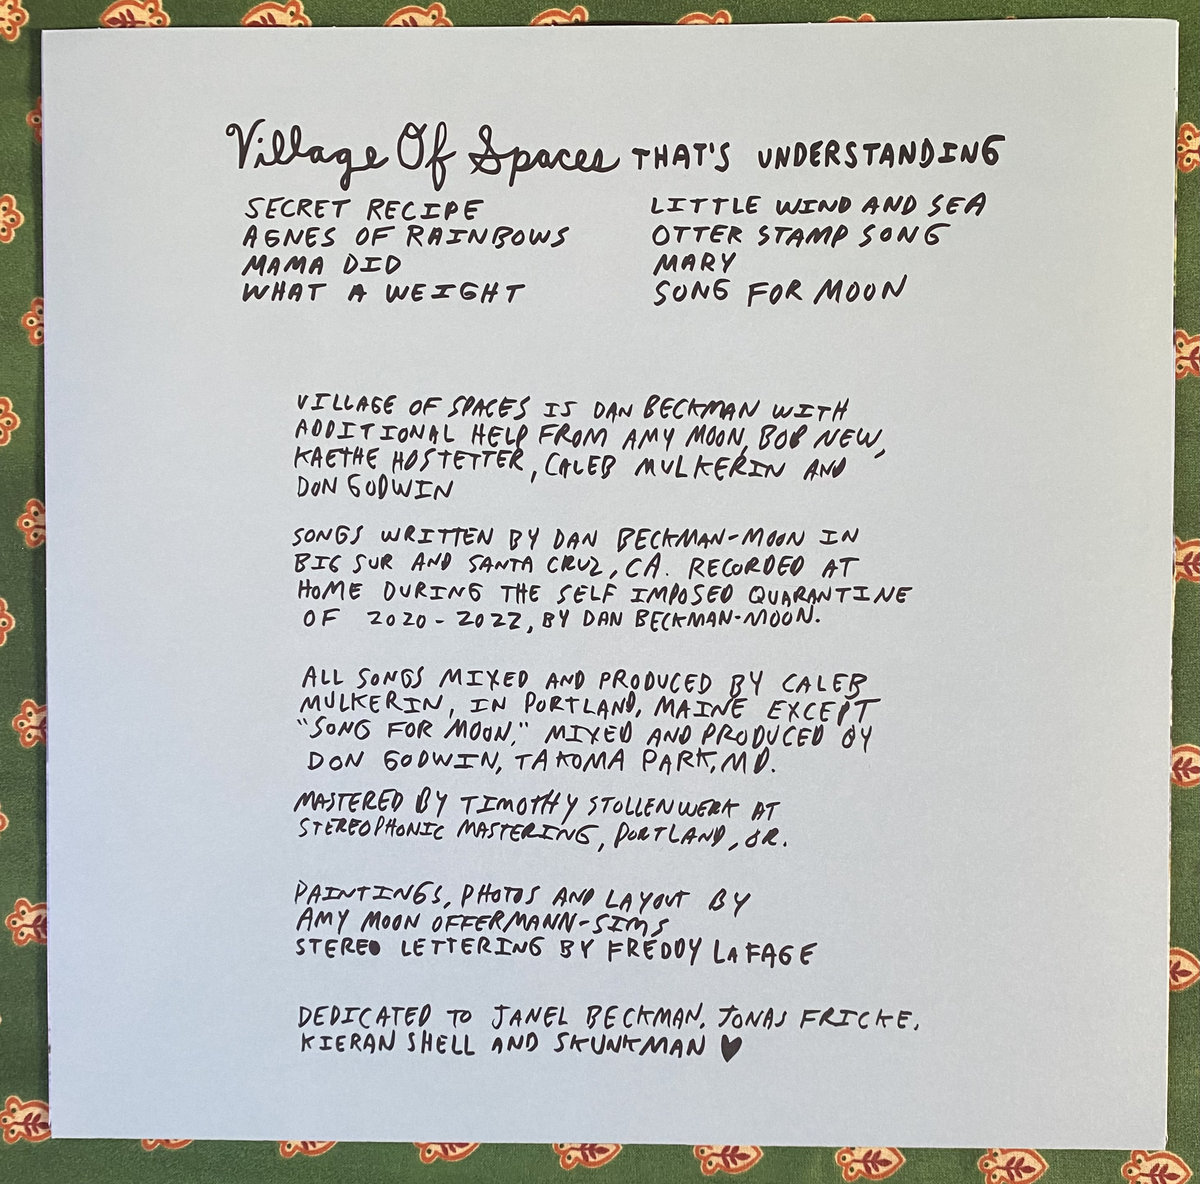 Village Of Spaces THAT'S UNDERSTANDING
SECRET RECIPE
AGNES OF RAINBOWS
MAMA DID
WHAT A WEIGHT
LITTLE WIND AND SEA
OTTER STAMP SONG
MARY
SONG FOR MOON
VILLAGE OF SPACES IS DAN BECKMAN WITH
ADDITIONAL HELP FROM AMY MOON, BOB NEW,
KAETHE HOSTETTER, CALEB MULKERIN AND
DON GODWIN
SONGS WRITTEN BY DAN BECKMAN-MOON IN
BIG SUR AND SANTA CRUZ, CA. RECORDED AT
HOME DURING THE SELF IMPOSED QUARANTINE
OF 2020-2022, BY DAN BECKMAN-MOON.
ALL SONGS MIXED AND PRODUCED BY CALEB
MULKERIN, IN PORTLAND, MAINE EXCEPT
"SONG FOR MOON," MIXED AND PRODUCED BY
DON GODWIN, TAKOMA PARK, MD.
MASTERED BY TIMOTHY STOLLENWERK AT
STEREOPHONIC MASTERING, PORTLAND, OR.
PAINTINGS, PHOTOS AND LAYOUT BY
AMY MOON OFFERMANN-SIMS
STEREO LETTERING BY FREDDY LAFAGE
DEDICATED TO JANEL BECKMAN, JONAS FRICKE,
KIERAN SHELL AND SKUNKMAN ♥